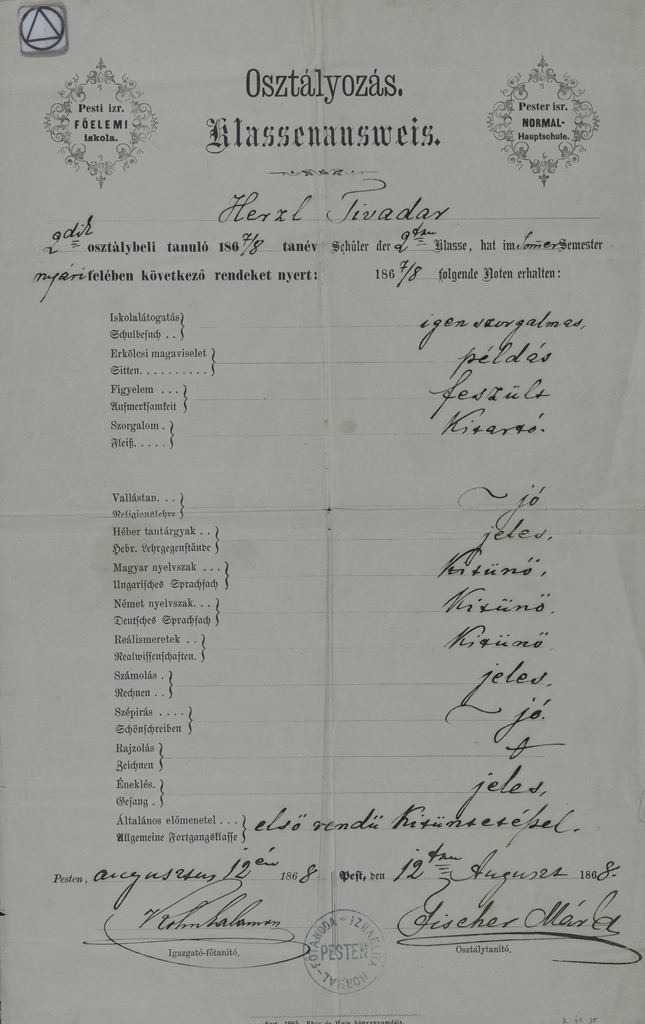 Pesti izr.
FŐELEMI
iskola.
Osztályozás.
Klassenausweis.
Pester isr.
NORMAL-
Hauptschule.
Herzl Tivadar
2dik osztálybeli tanuló 1867/8 tanév
nyári felében következő rendeket nyert:
Schüler der 2ten Klasse, hat im Somer Semester
1867/8 folgende Noten erhalten:
Iskolalátogatás igen szorgalmas,
Schulbesuch . .
Erkölcsi magaviselet példás
Sitten. . . . . . . . . .
Figyelem . . . feszült
Aufmerksamkeit
Szorgalom . Kitartó.
Fleiß. . . . .
Vallástan. . . jó
Religionslehre
Héber tantárgyak . . jeles,
Hebr. Lehrgegenstände
Magyar nyelvszak . . . Kitünő,
Ungarisches Sprachfach
Német nyelvszak. . . Kitünő.
Deutsches Sprachfach
Reálismeretek . . Kitünő
Realwissenschaften.
Számolás . jeles.
Rechnen . .
Szépirás . . . . jó.
Schönschreiben
Rajzolás
Zeichnen
Éneklés. jeles,
Gesang .
Általános előmenetel . . . első rendü Kitüntetéssel.
Allgemeine Fortgangsklasse
Pesten, augusztus 12én 1868
Pest, den 12ten August 1868.
Kohn Salamon
Igazgató-főtanító.
Fischer Márk
Osztálytanító.
NORMAL-FŐTANODA - IZRAELITA
PESTEN